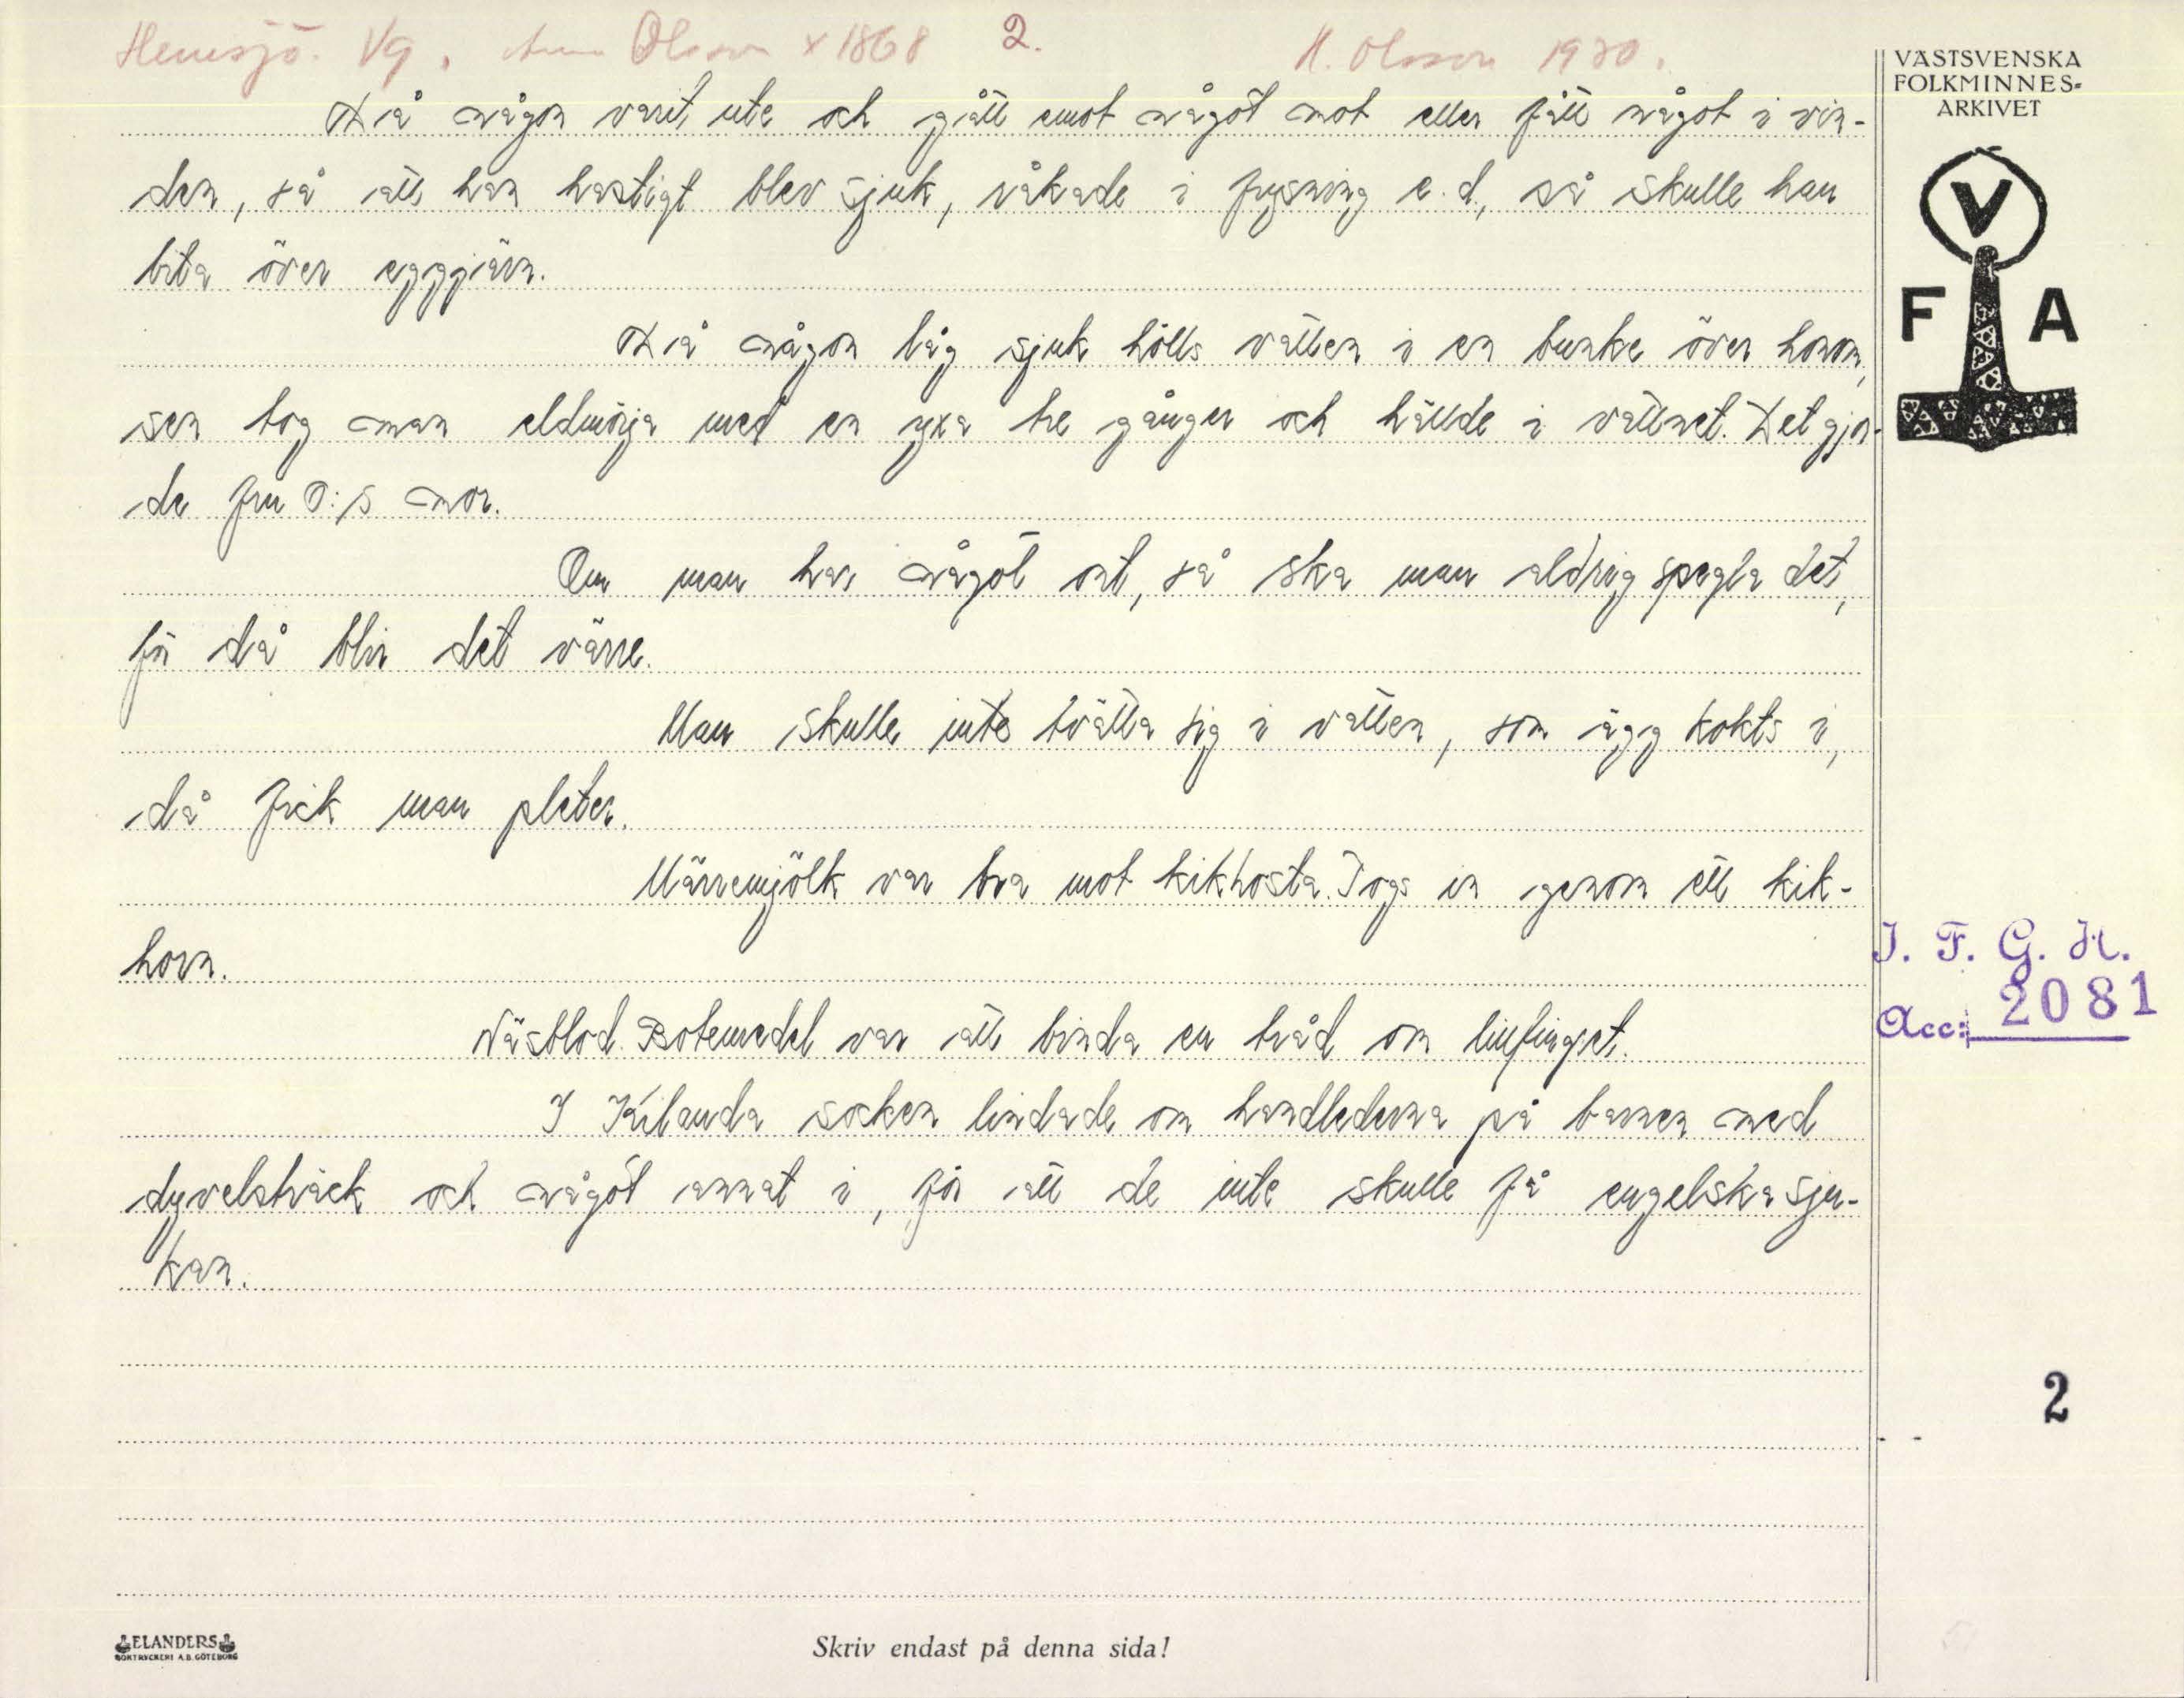 Hemsjö. Vg. Anna Olsson x 1868 2. H. Olsson 1930.
VÄSTSVENSKA
FOLKMINNES-
ARKIVET
V
F A
Då någon varit ute och gått emot något mot eller fått något i vin-
den, så att han hastigt blev sjuk, råkade i frysning e.d., så skulle han
bita över eggjärn.
Då någon låg sjuk hölls vatten i en bunke över honom,
sen tog man eldmörja med en yxa tre gånger och hällde i vattnet. Det gjor-
de fru O:s mor.
Om man har något ont, så ska man aldrig spegla det,
för då blir det värre.
Man skulle inte tvätta sig i vatten, som ägg kokts i,
då fick man pleter.
Märremjölk var bra mot kikhosta. Togs in genom ett kik-
horn.
Näsblod. Botemedel var att binda en tråd om lillfingret.
I Kilanda socken lindade om handlederna på barnen med
dyvelsträck och något annat i, för att de inte skulle få engelska sju-
kan.
I. F. G. H.
Acc: 2081
2
ELANDERS
BOKTRYCKERI A.B. GÖTEBORG
Skriv endast på denna sida!